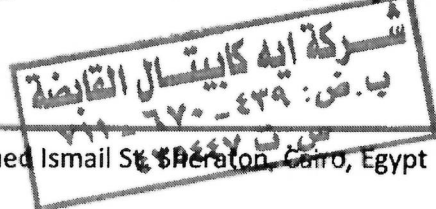 شركة ايه كابيتال القابضة
ب.ض: ٤٣٩ - ٦٧٠ -
س.ت
Ismail St, Sheraton, Cairo, Egypt